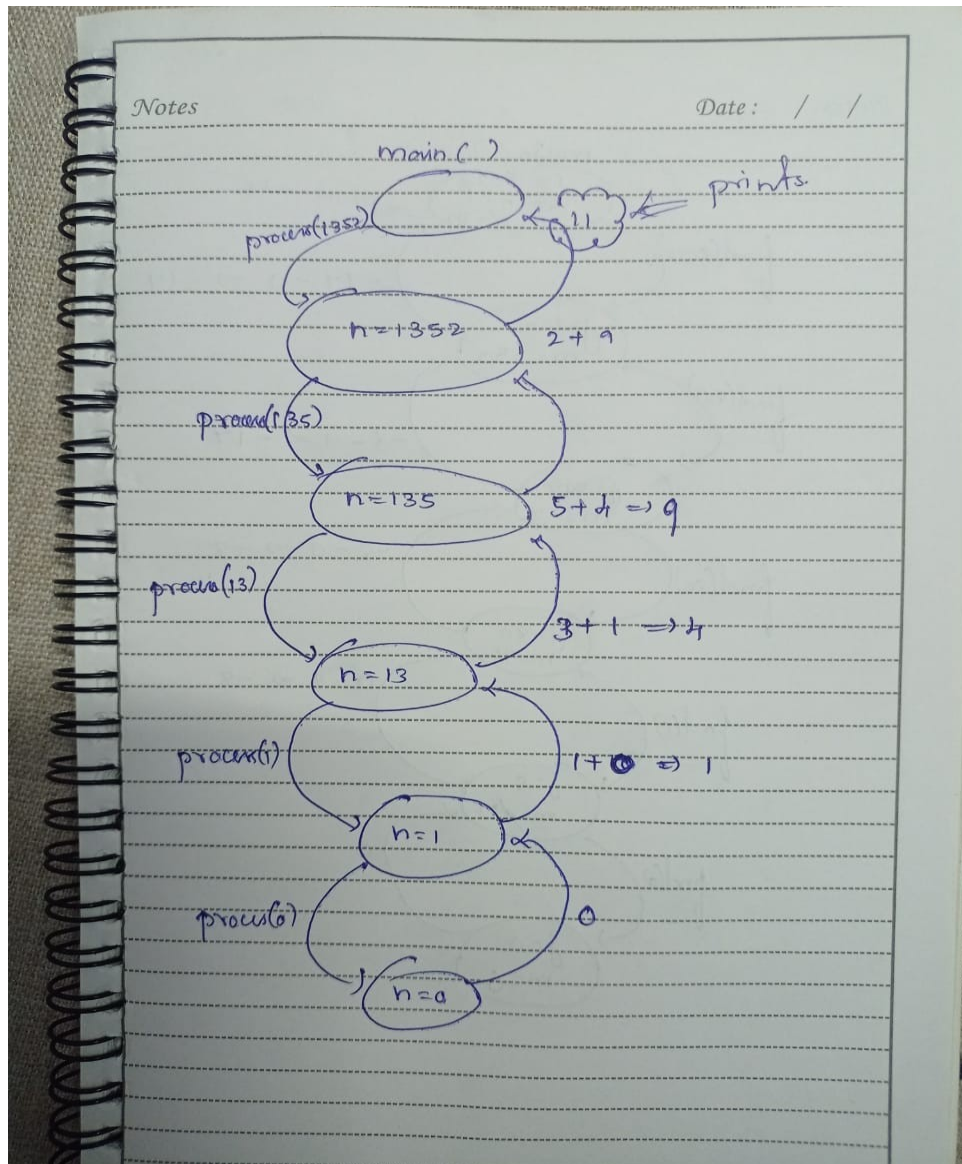 Notes
Date : / /
main ( )
prints.
process(1352)
11
n=1352
2 + 9
process(135)
n=135
5+4 => 9
process(13)
3+1 => 4
n=13
process(1)
1+0 => 1
n=1
process(0)
0
n=0